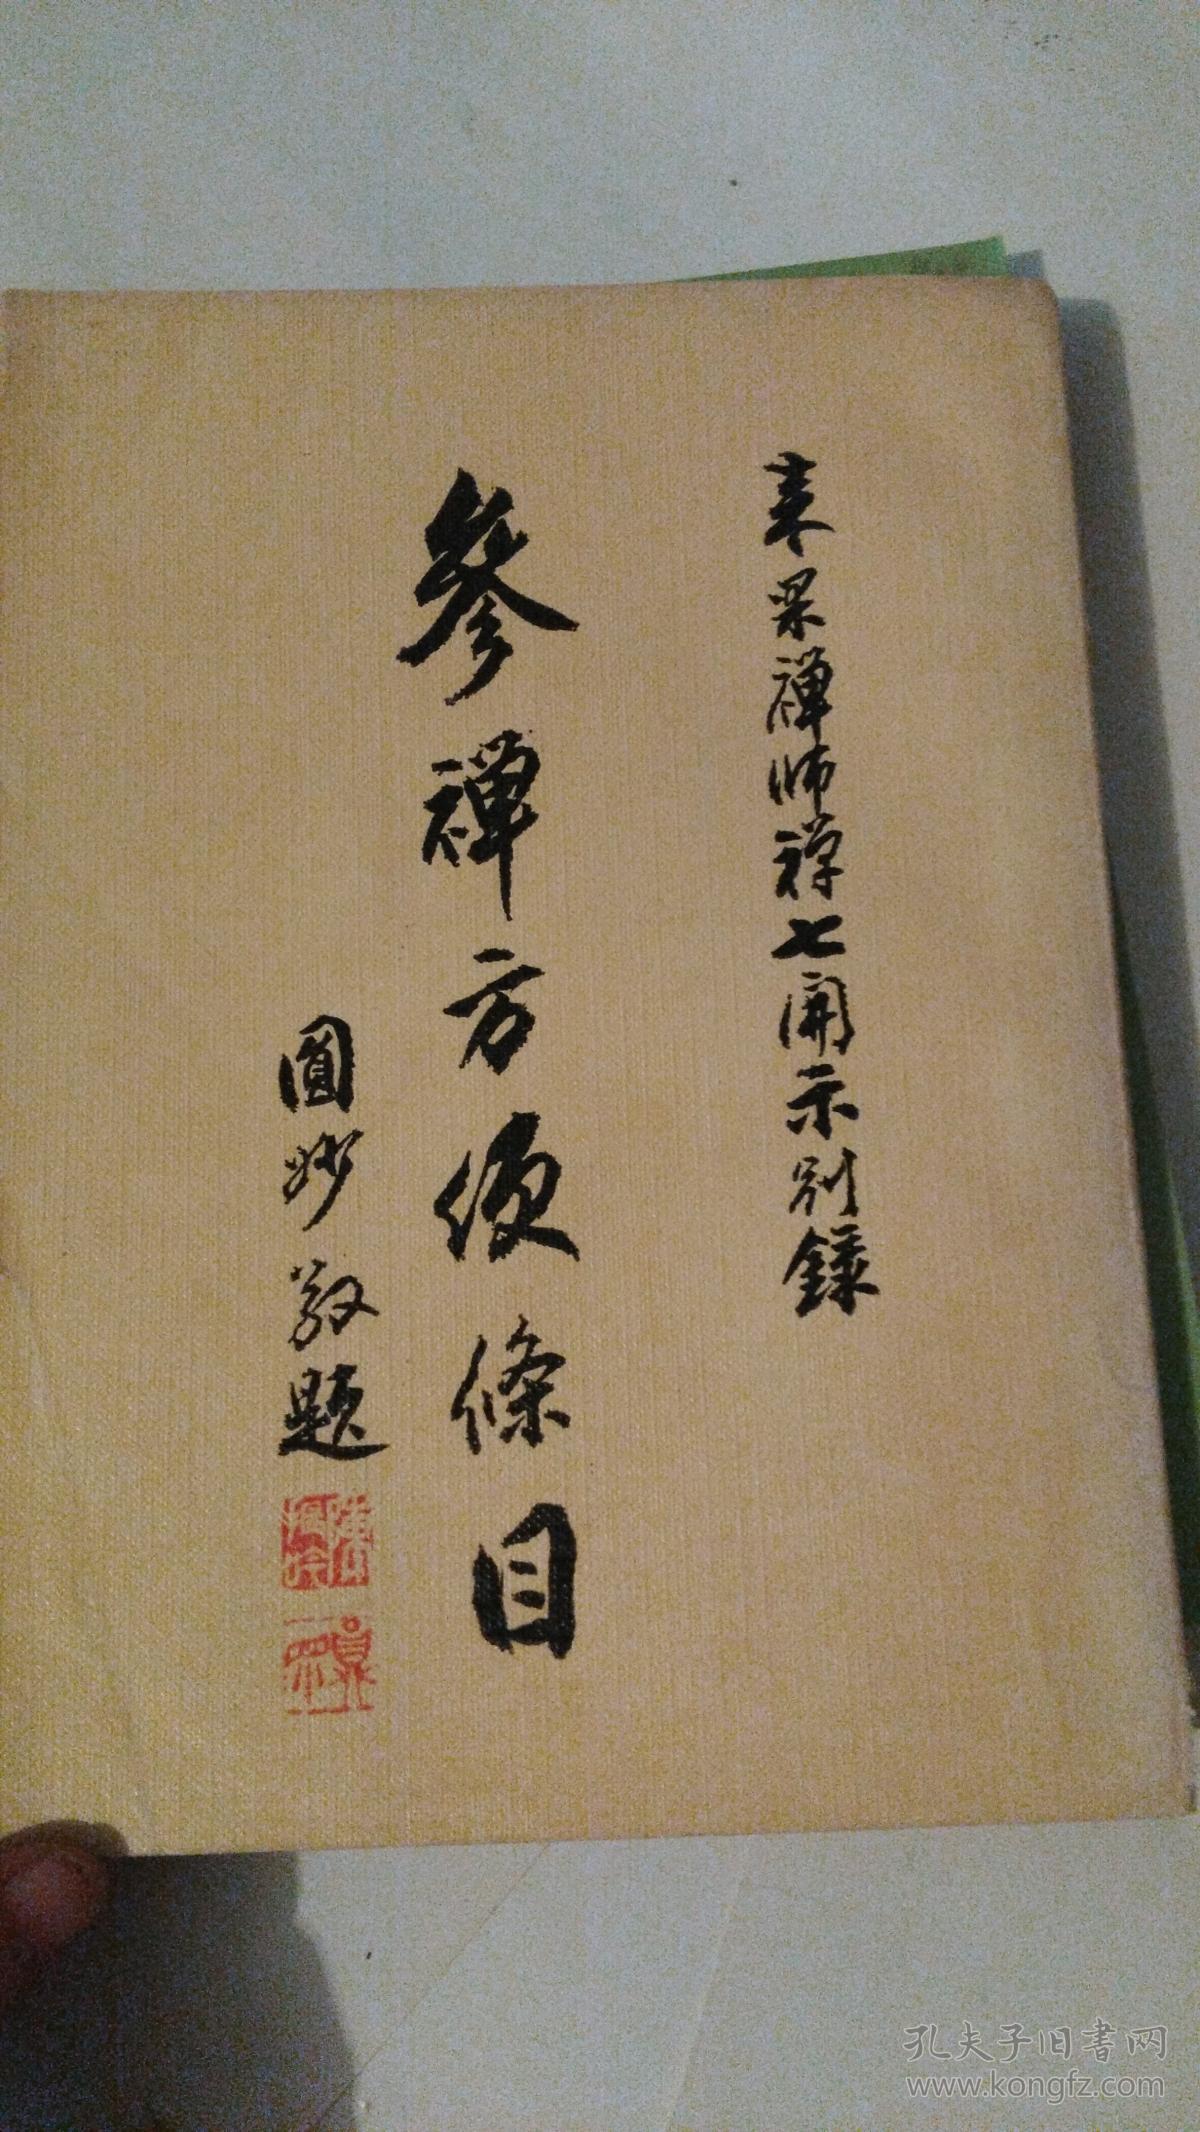 來果禪師禅七開示別錄
參禪方便條目
圓妙敬題
孔夫子旧書网
www.kongfz.com